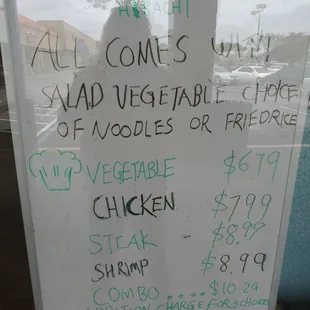 HIBACHI
ALL COMES WITH
SALAD VEGETABLE CHOICE
OF NOODLES OR FRIED RICE
VEGETABLE $6.79
CHICKEN $7.99
STEAK - $8.99
SHRIMP $8.99
COMBO .... $10.29
ADDITION CHARGE FOR 3 CHOICE